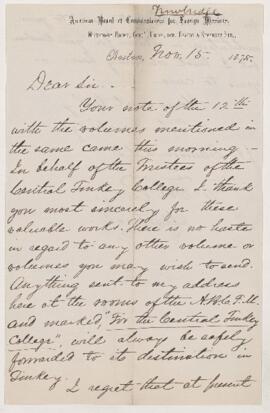 Trowbridge
American Board of Commissioners for Foreign Missions,
Missionary House,
Boston, Nov. 15. 1875.
Dear Sir.
Your note of the 12th
with the volumes mentioned in
the same came this morning—
In behalf of the Trustees of the
Central Turkey College I thank
you most sincerely for these
valuable works. There is no haste
in regard to any other volume or
volumes you may wish to send.
Anything sent to my address
here at the rooms of the A.B.C.F.M.
and marked, "For the Central Turkey
College", will always be safely
forwarded to its destination in
Turkey.
I regret that at present